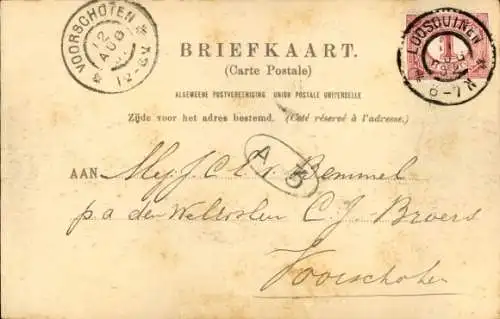 VOORSCHOTEN
12
AUG
12-6V
LOOSDUINEN
1
6-7N
BRIEFKAART.
(Carte Postale)
ALGEMEENE POSTVEREENIGING UNION POSTALE UNIVERSELLE
Zijde voor het adres bestemd. (Coté réservé à l'adresse.)
A 3
AAN Mej. J C Bemmel
p.a den C. J. Broers
Voorschoten